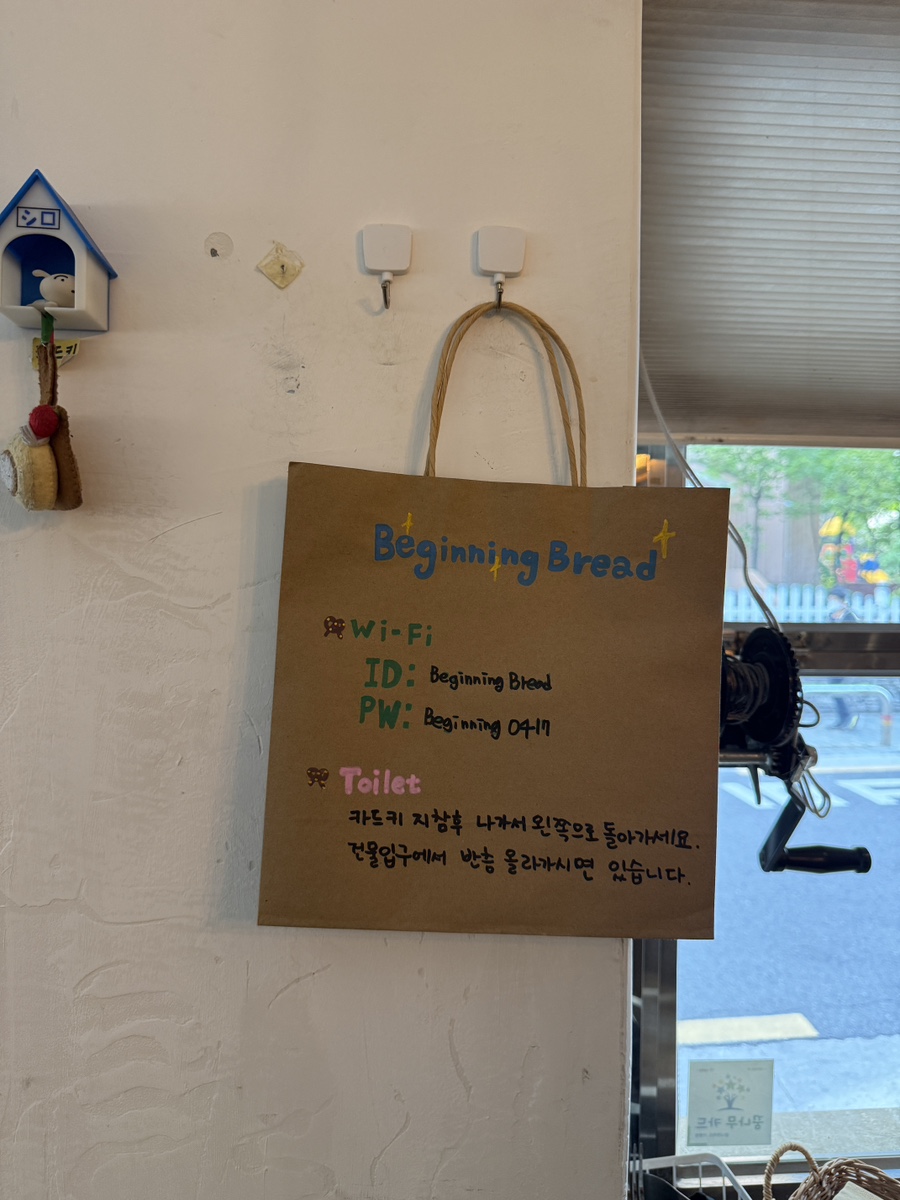 シロ
드키
Beginning Bread
Wi-Fi
ID: Beginning Bread
PW: Beginning 0417
Toilet
카드키 지참후 나가서 왼쪽으로 돌아가세요.
건물입구에서 반층 올라가시면 있습니다.
꿈나무 카드